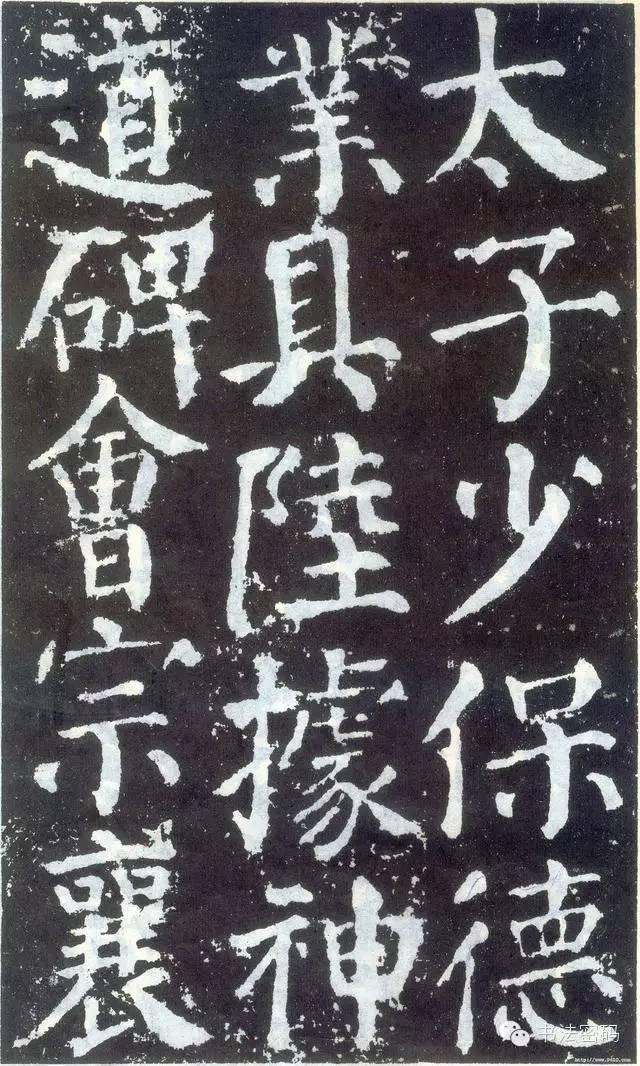 太子少保德
業具陸據神
道碑會宗襄
书法密码
http://www.9610.com